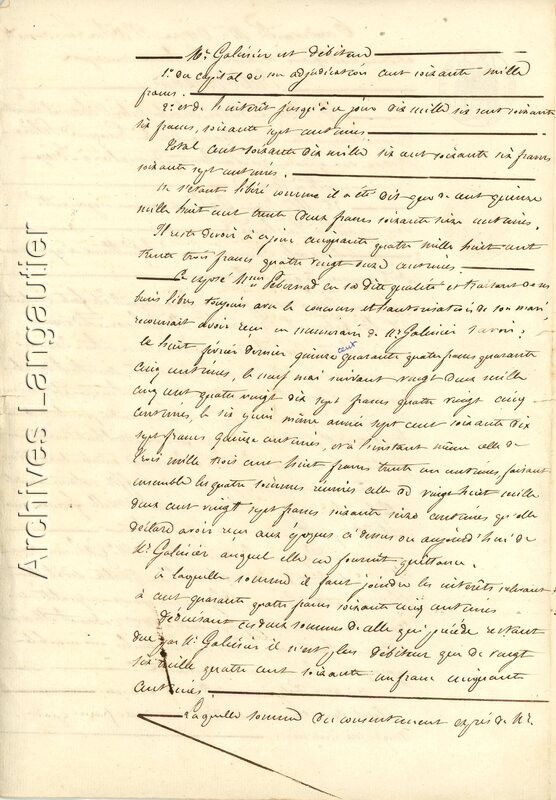 Mr. Galinier est débiteur
1o. du capital de son adjudication cent soixante mille
francs.
2o. et de l'intérêt jusqu'à ce jour dix mille six cent soixante
six francs, soixante sept centimes.
Total cent soixante dix mille six cent soixante six francs
soixante sept centimes.
ne s'étant libéré comme il a été dit que de cent quinze
mille huit cent trente deux francs soixante seize centimes.
Il reste devoir à ce jour cinquante quatre mille huit cent
trente trois francs quatre vingt onze centimes
Ce exposé Mme en sa dite qualité et traitant de ses
biens libres toujours avec le concours et l'autorisation de son mari
reconnait avoir reçu en numéraire de Mr. Galinier savoir:
le huit février dernier quinze cent quarante quatre francs quarante
cinq centimes, le neuf mai suivant vingt deux mille
cinq cent quatre vingt dix sept francs quatre vingt cinq
centimes, le six juin même année sept cent soixante dix
sept francs quinze centimes, et à l'instant même celle de
trois mille trois cent huit francs trente un centimes faisant
ensemble les quatre sommes réunies celle de vingt huit mille
deux cent vingt sept francs soixante seize centimes qu'elle
déclare avoir reçu aux époques ci dessus ou aujourd'hui de
Mr. Galinier auquel elle en fournit quittance.
à laquelle somme il faut joindre les intérêts relevant
à cent quarante quatre francs soixante cinq centimes
Déduisant ces deux sommes de celle qui précède restant
due par Mr. Galinier il n'est plus débiteur que de vingt
six mille quatre cent soixante un franc cinquante
centimes
Laquelle somme du consentement exprès de Mr.
Archives Langautier